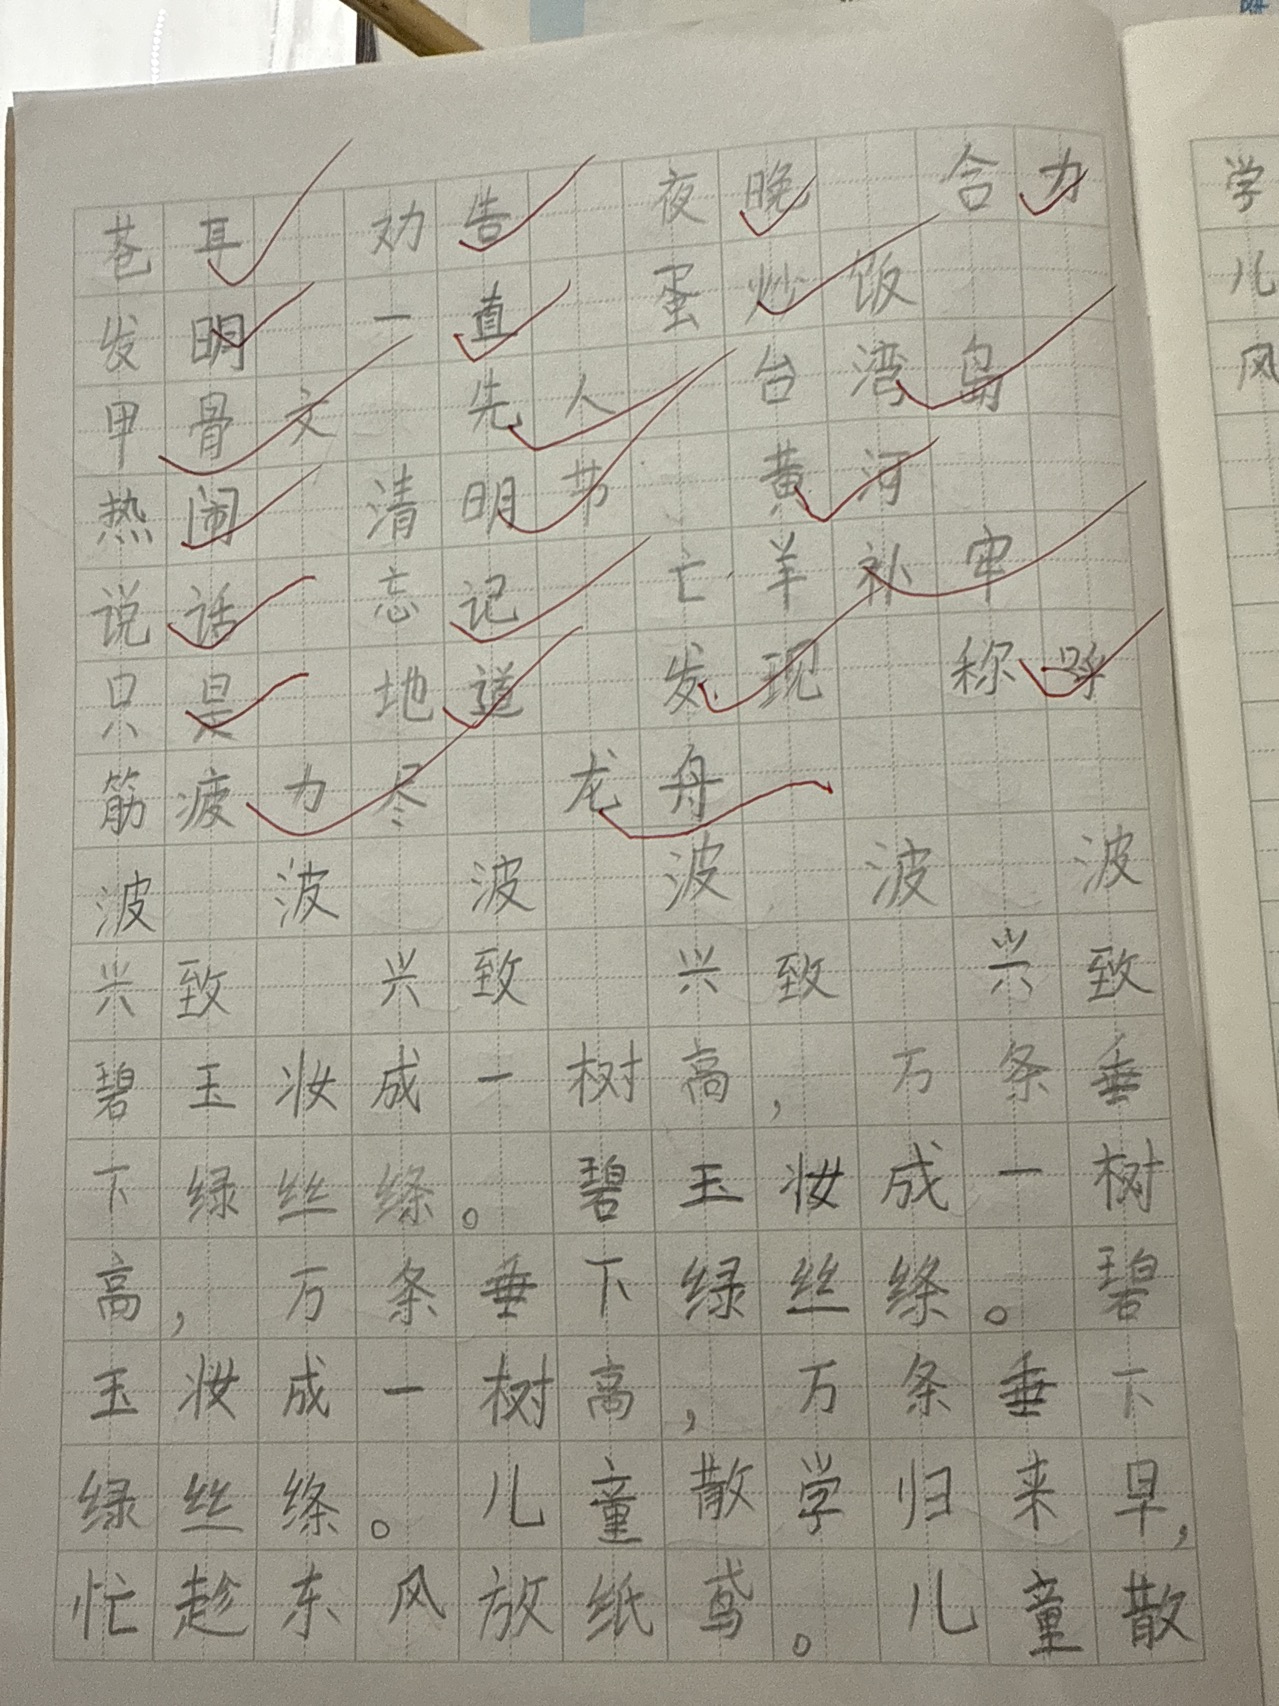 苍耳 劝告 夜晚 合力
发明 一直 蛋炒饭
甲骨文 先人 台湾岛
热闹 清明节 黄河
说话 忘记 亡羊补牢
只是 地道 发现 称呼
筋疲力尽 龙舟
波 波 波 波 波 波
兴致 兴致 兴致 兴致
碧玉妆成一树高，万条垂
下绿丝绦。碧玉妆成一树
高，万条垂下绿丝绦。碧
玉妆成一树高，万条垂下
绿丝绦。儿童散学归来早，
忙趁东风放纸鸢。儿童散
学
儿
风